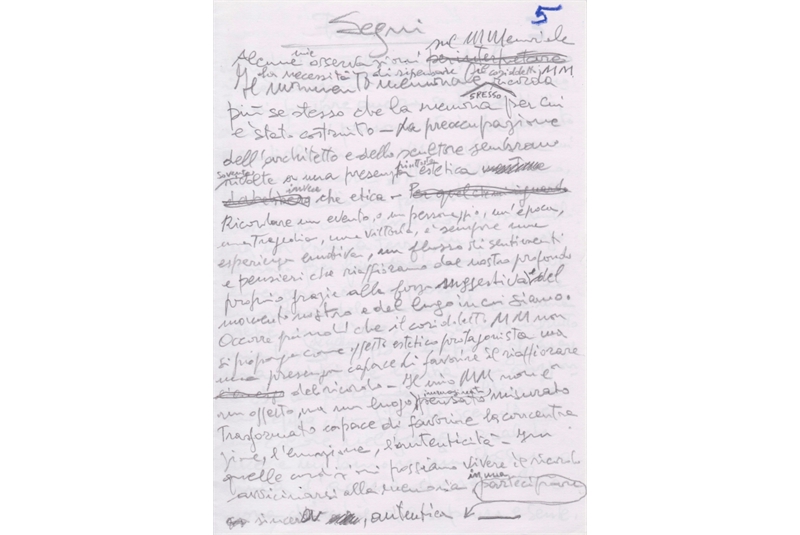 5
Segni
Alcune mie osservazioni per interpretare sul M Memoriale
la necessità di ripensare i cosiddetti MM
Il monumento memoriale SPESSO ricorda
più se stesso che la memoria per cui
è stato costruito – La preoccupazione
dell'architetto e dello scultore sembrano
rivolte a una presenza piuttosto estetica
invece che etica – Per qualche riguardo
Ricordare un evento, o un personaggio, un'epoca,
una tragedia, una vittoria, è sempre una
esperienza emotiva, un flusso di sentimenti
e pensieri che riaffiorano dal nostro profondo
proprio grazie alla forza suggestiva del
momento nostro e del luogo in cui siamo.
Occorre prima che il cosidetto MM non
si proponga come oggetto estetico protagonista ma
una presenza capace di favorire il riaffiorare
del ricordo – Il mio MM non è
un oggetto, ma un luogo pensato misurato
trasformato capace di favorire la concentra
zione, l'emozione, l'autenticità – In
quelle condizioni possiamo vivere il ricordo
avvicinarsi alla memoria in una partecipazione
sincera, autentica